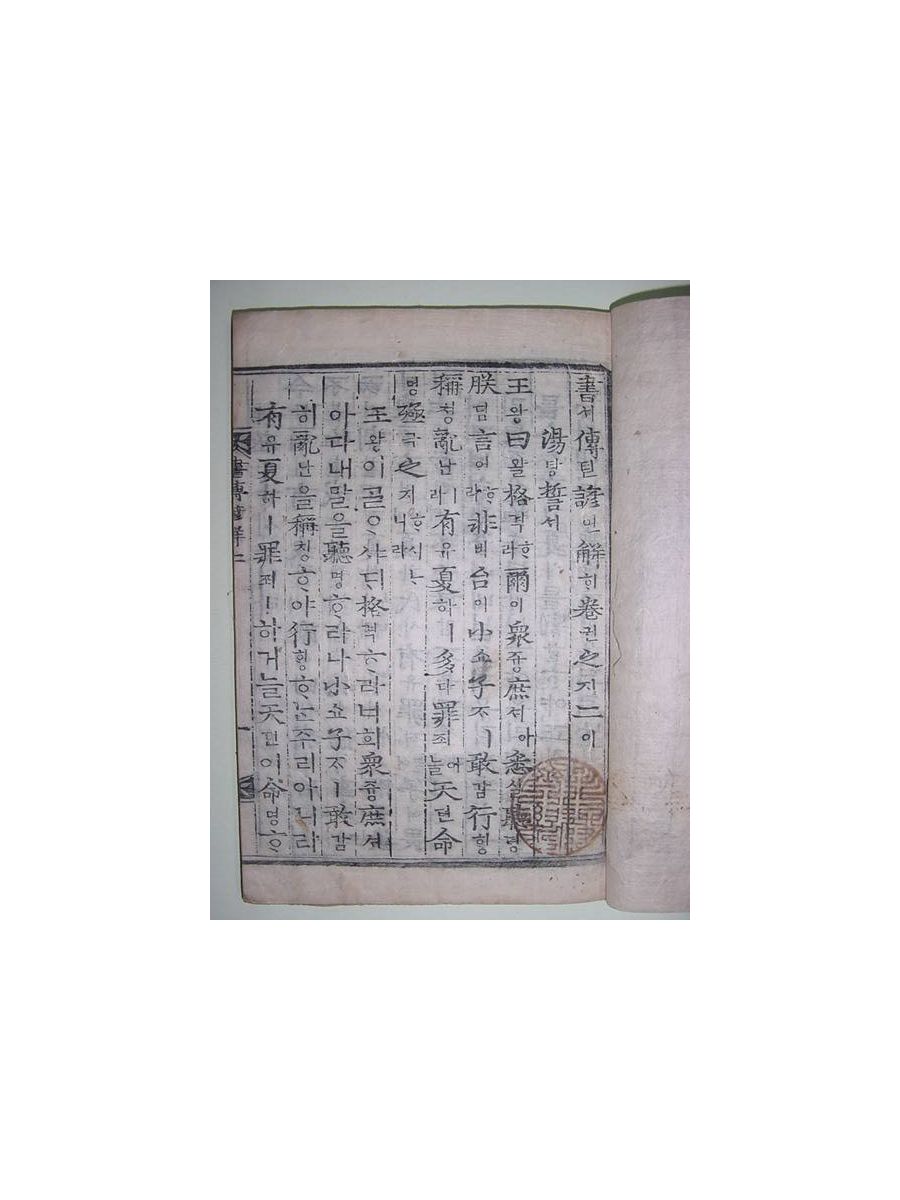 書셔傳뎐諺언解ᄒᆡ卷권之지二이
湯탕誓셔
王왕曰왈格격ᄒᆞ라爾이衆즁庶셔아悉실聽텽
朕딤言언ᄒᆞ라非비台이小쇼子ᄌᆞㅣ敢감行ᄒᆡᆼ
稱칭亂난ㅣ라有유夏하ㅣ多다罪죄어늘天텬命
명殛극之지ᄒᆞ시ᄂᆞ니라
王왕이ᄀᆞᆯᄋᆞ샤ᄃᆡ格격ᄒᆞ라너희衆즁庶셔
아다내말을聽텽ᄒᆞ라나小쇼子ᄌᆞㅣ敢감
히亂난을稱칭ᄒᆞ야行ᄒᆡᆼᄒᆞᄂᆞᆫ주리아니라
有유夏하ㅣ罪죄ㅣ하거늘天텬이命명ᄒᆞ
書傳諺解二